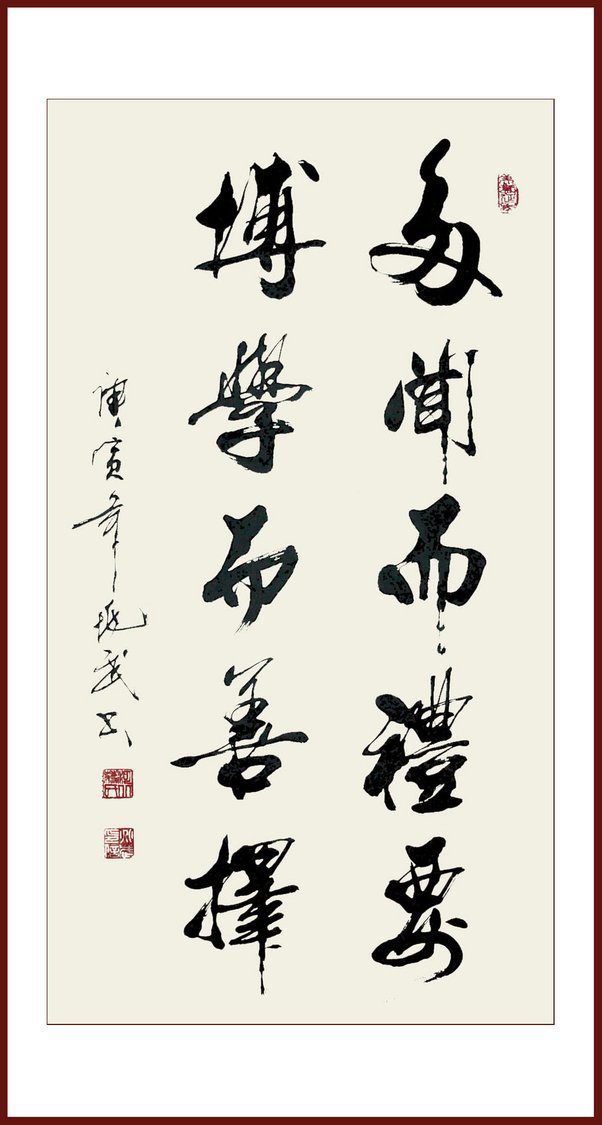 多聞而禮要
博學而善擇
庚寅年 武书